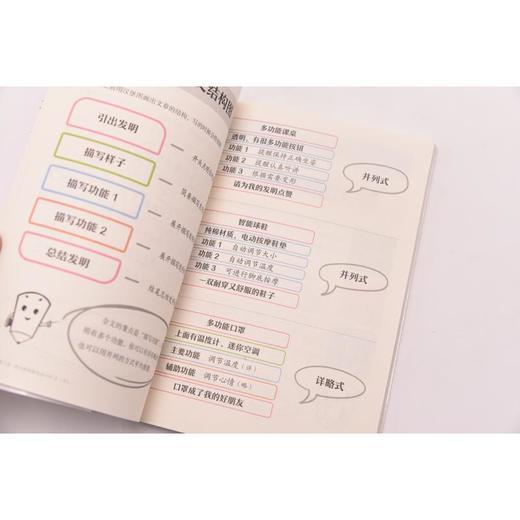 结构图
引出发明
描写样子
描写功能 1
描写功能 2
总结发明
多功能课桌
透明，有很多功能按钮
功能 1 提醒保持正确坐姿
功能 2 提醒认真听讲
功能 3 根据需要变形
请为我的发明点赞
并列式
智能球鞋
纯棉材质，电动按摩鞋垫
功能 1 自动调节大小
功能 2 自动调节温度
功能 3 可进行脚底按摩
一双耐穿又舒服的鞋子
并列式
多功能口罩
上面有温度计、迷你空调
主要功能 调节温度（详）
辅助功能 调节心情（略）
口罩成了我的好朋友
详略式